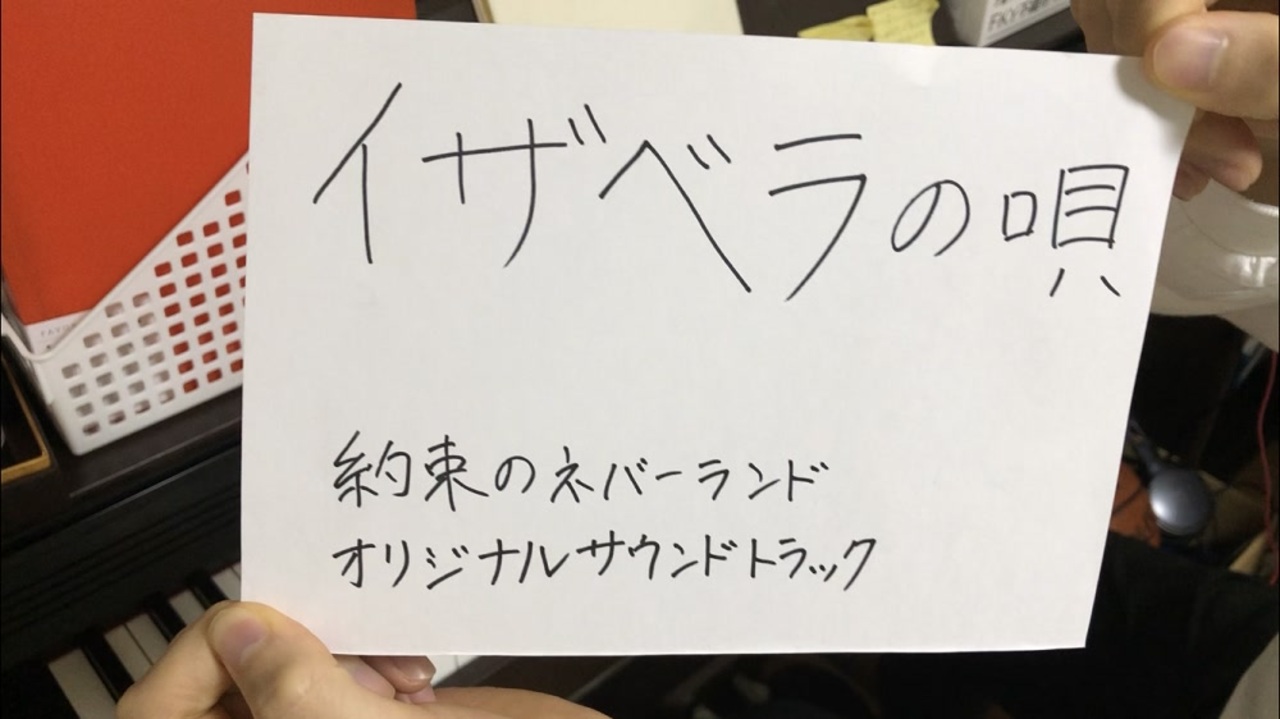 イザベラの唄
約束のネバーランド
オリジナルサウンドトラック